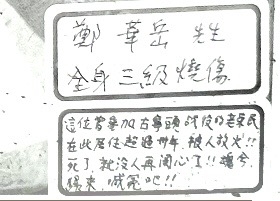 鄭 華岳 先生
全身三級燒傷
這位曾參加古寧頭試役的老榮民
在此居住超過卅年，被人放火!!
死了就沒人再関心了!! 魂兮
歸來，喊冤吧!!